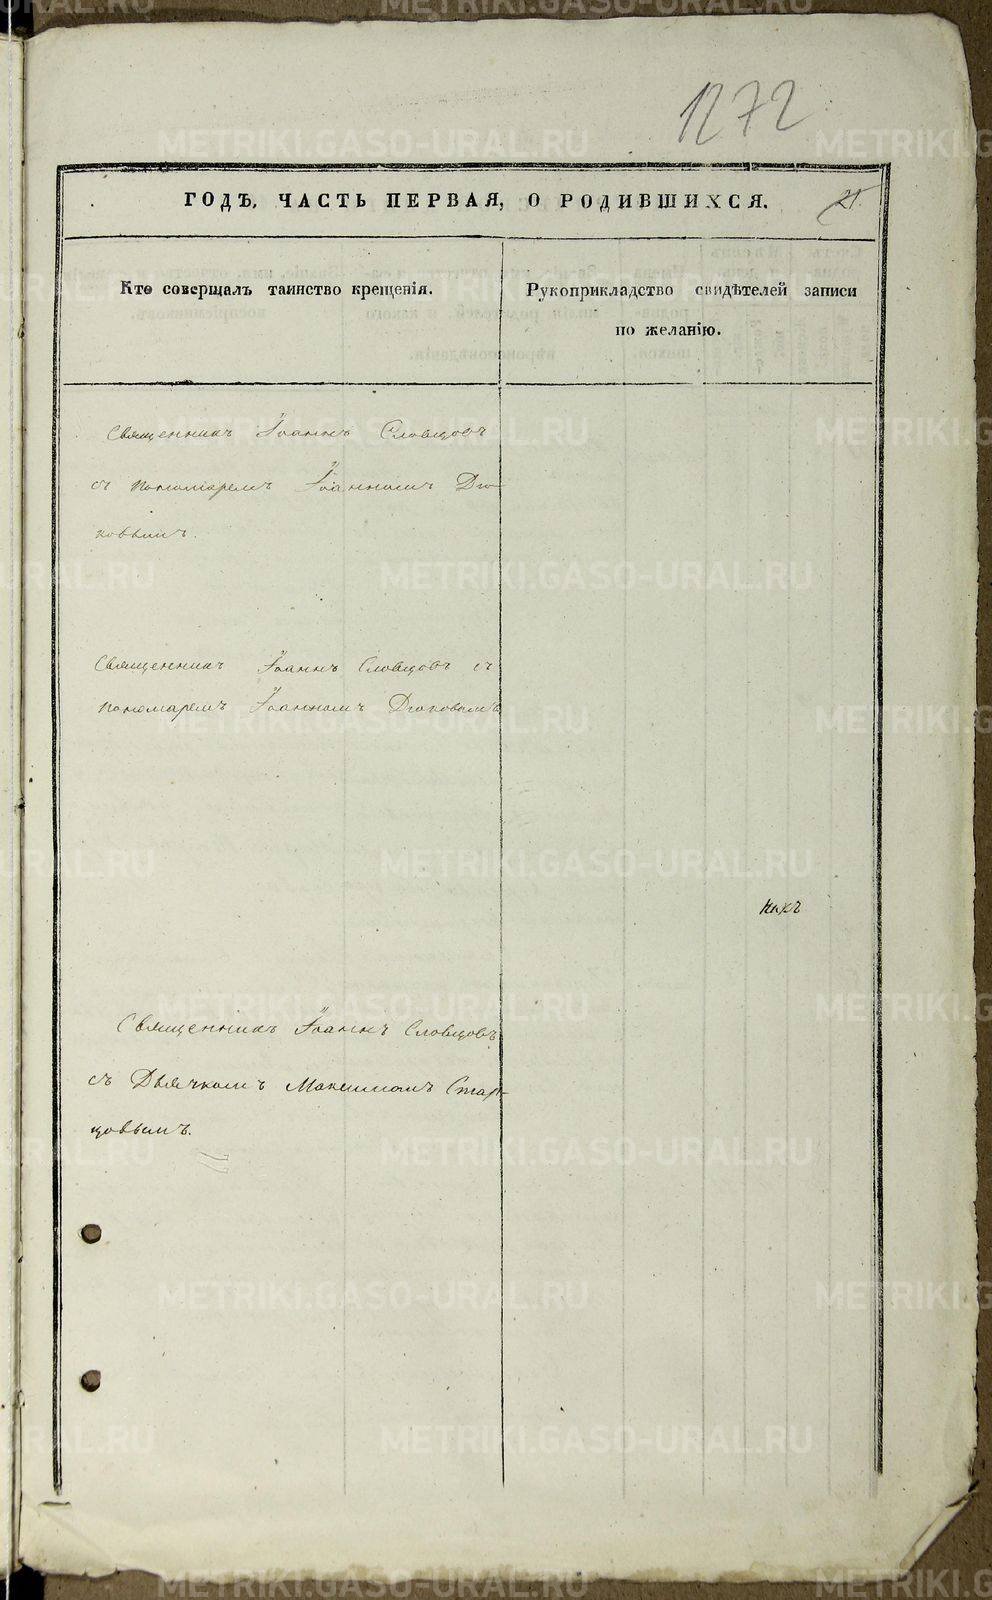 1272
ГОДЪ, ЧАСТЬ ПЕРВАЯ, О РОДИВШИХСЯ.
21.
Кто совершалъ таинство крещенія.
Рукоприкладство свидѣтелей записи
по желанію.
Священникъ Іоаннъ Словцовъ
съ пономаремъ Іоанномъ Дю-
ковымъ.
Священникъ Іоаннъ Словцовъ съ
пономаремъ Іоанномъ Дюковымъ
Священникъ Іоаннъ Словцовъ
съ Дьячкомъ Максимомъ Стар-
цовымъ.
METRIKI.GASO-URAL.RU